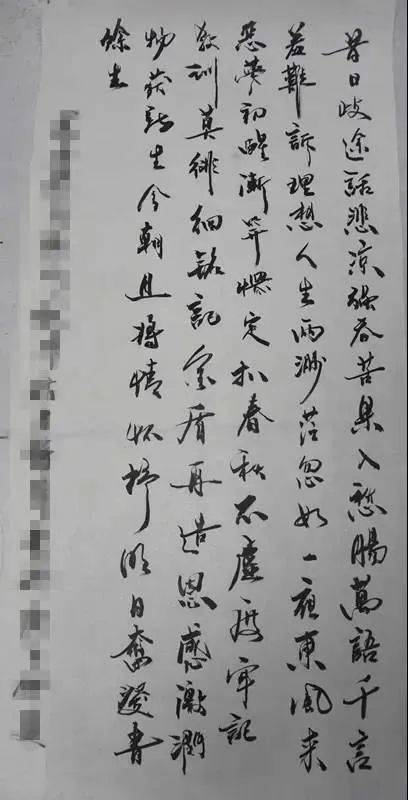 昔日歧途話悲涼強吞苦果入愁腸萬語千言
羞難訴理想人生兩渺茫忽如一夜東風来
惡夢初醒漸定春秋不虛度牢記
教訓莫徘徊銘記金盾再造恩感激潤
物獲新生今朝且將情懷抒明日奮發書
餘生